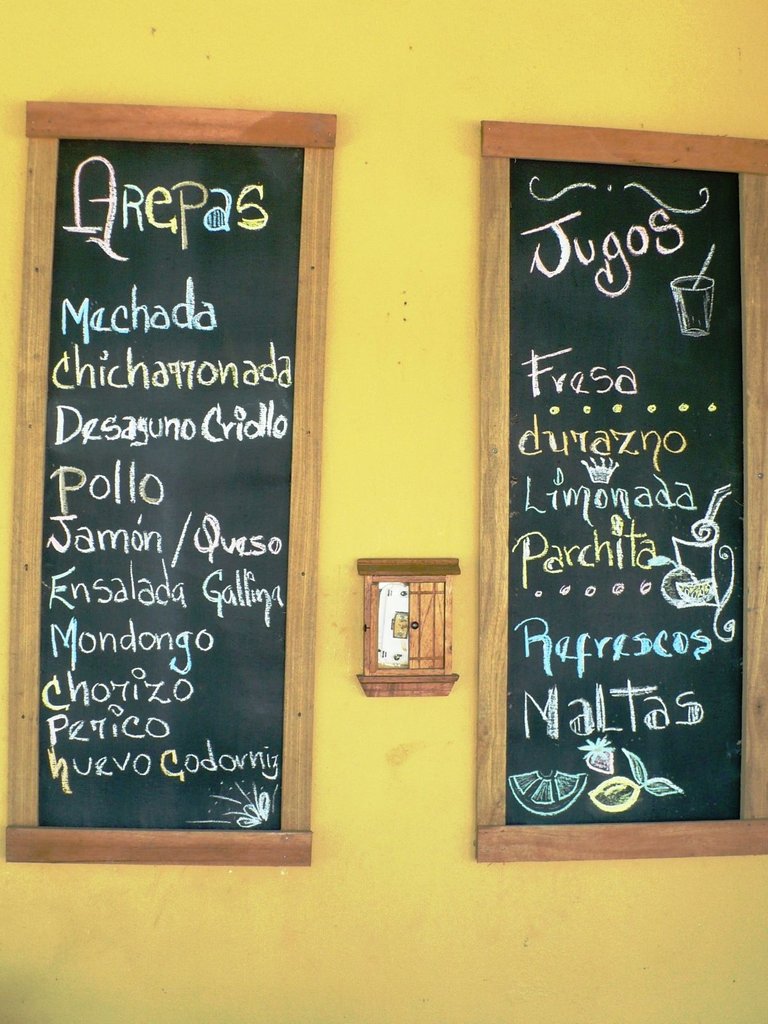 Arepas
Mechada
Chicharronada
Desayuno Criollo
Pollo
Jamón / Queso
Ensalada Gallina
Mondongo
Chorizo
Perico
huevo Codorniz
Jugos
Fresa
durazno
Limonada
Parchita
Refrescos
Maltas